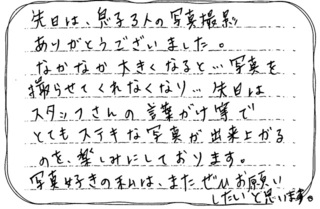 先日は、息子3人の写真撮影
ありがとうございました。
なかなか大きくなると…写真を
撮らせてくれなくなり…先日は
スタッフさんの言葉がけ等で
とてもステキな写真が出来上がる
のを、楽しみにしております。
写真好きの私は、またぜひお願い
したいと思います。